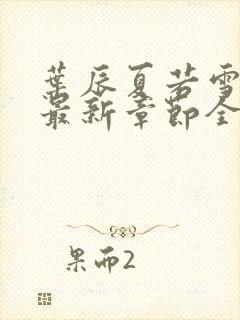 葉辰夏若雪
最新章節全
果而2